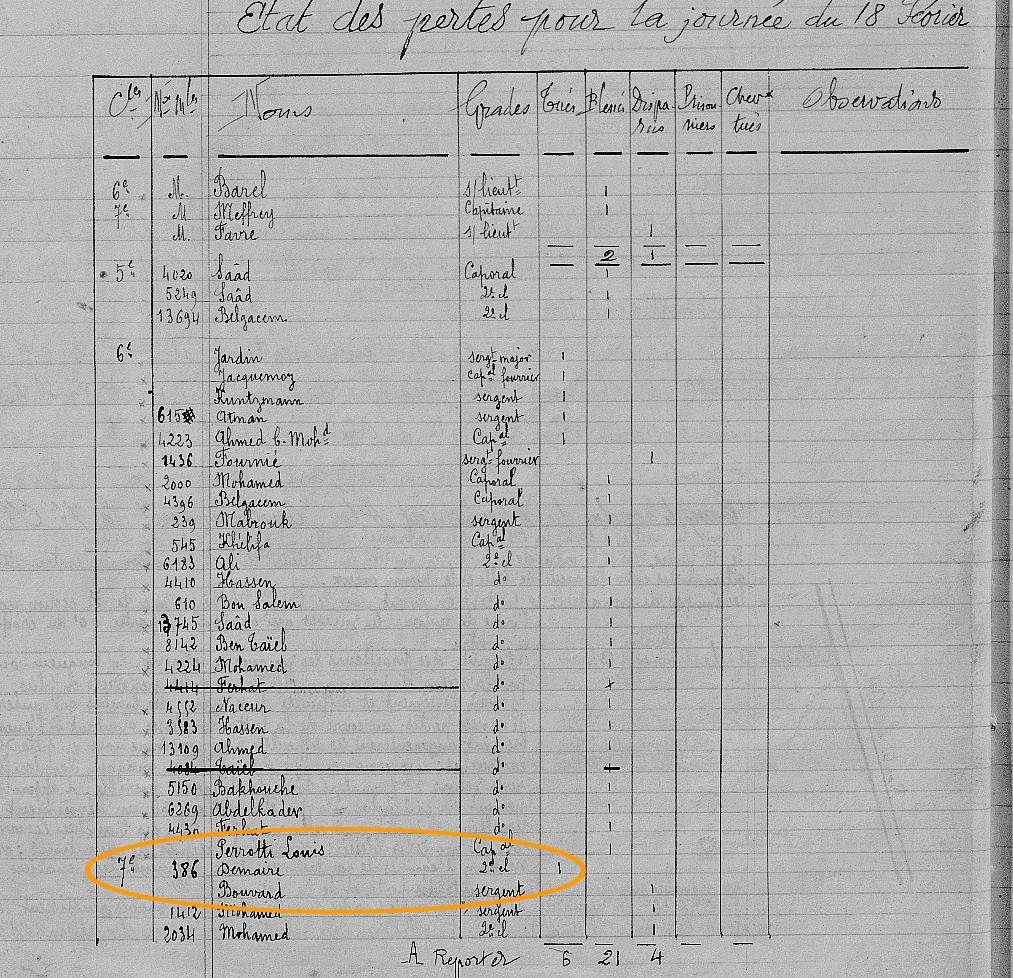 Etat des pertes pour la journée du 18 Février
Cies Nos Mles Noms Grades Tués Blessés Dispa- Prison- Chevx Observations
rus niers tués
6e M. Barel s/lieutt 1
7e M. Meffrey Capitaine 1
M. Favre s/lieutt 1
2 1
5e 4020 Saâd Caporal 1
5249 Saâd 2e cl 1
13694 Belgacem 2e cl 1
6e Jardin sergt major 1
Jacquemoz Capal fourrier 1
Kuntzmann sergent 1
615 Atman sergent 1
4223 Ahmed b. Mohd Capal 1
1436 Fournié sergt fourrier 1
2000 Mohamed Caporal 1
4396 Belgacem Caporal 1
239 Mabrouk sergent 1
545 Khélifa Capal 1
6183 Ali 2e cl 1
4410 Hassen do 1
610 Bou Salem do 1
13745 Saâd do 1
8142 Ben Taïeb do 1
4224 Mohamed do 1
4414 Ferhat do x
4552 Naceur do 1
3583 Hassen do 1
13109 Ahmed do 1
4084 Taïeb do
5150 Bakhouche do 1
6269 Abdelkader do 1
4430 Ferhat do 1
Perrotti Louis Capal 1
7e 386 Demaire 2e cl 1
Bouvard sergent 1
1412 Mohamed sergent 1
2034 Mohamed 2e cl 1
A Reporter 6 21 4